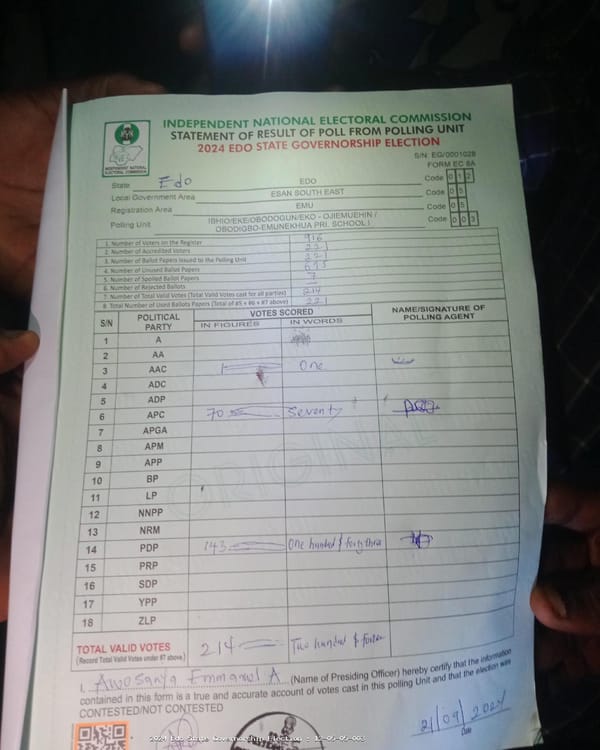 INDEPENDENT NATIONAL ELECTORAL COMMISSION
STATEMENT OF RESULT OF POLL FROM POLLING UNIT
2024 EDO STATE GOVERNORSHIP ELECTION
S/N: EG/0001028
FORM EC 8A
INDEPENDENT NATIONAL ELECTORAL COMMISSION
State Edo EDO Code 0 1 2
Local Government Area ESAN SOUTH EAST Code 0 5
Registration Area EMU Code 0 5
Polling Unit IBHIO/EKE/OBODOGUN/EKO - OJIEMUEHIN / OBODIGBO-EMUNEKHUA PRI. SCHOOL I Code 0 0 3
1. Number of Voters on the Register 916
2. Number of Accredited Voters 221
3. Number of Ballot Papers Issued to the Polling Unit
4. Number of Unused Ballot Papers
5. Number of Spoiled Ballot Papers
6. Number of Rejected Ballots 7
7. Number of Total Valid Votes (Total Valid Votes cast for all parties) 214
8. Total Number of Used Ballots Papers (Total of #5 + #6 + #7 above) 221
S/N POLITICAL PARTY VOTES SCORED NAME/SIGNATURE OF POLLING AGENT
IN FIGURES IN WORDS
1 A
2 AA
3 AAC 1 One
4 ADC
5 ADP
6 APC 70 Seventy
7 APGA
8 APM
9 APP
10 BP
11 LP
12 NNPP
13 NRM
14 PDP 143 One hundred & forty three
15 PRP
16 SDP
17 YPP
18 ZLP
ORIGINAL
TOTAL VALID VOTES 214 Two hundred &
(Record Total Valid Votes under #7 above)
I, Awosanya Emmanuel A (Name of Presiding Officer) hereby certify that the information
contained in this form is a true and accurate account of votes cast in this polling Unit and that the election was
CONTESTED/NOT CONTESTED
21/09/2024
Date
2024 Edo State Governorship Election - 12-05-05-003